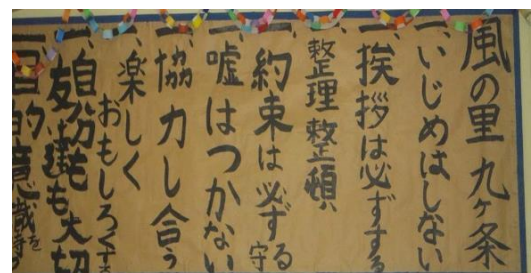 風の里 九ヶ条
一、いじめはしない
一、挨拶は必ずする
一、整理整頓
一、約束は必ず守る
一、嘘はつかない
一、協力し合う
一、楽しくおもしろくする
一、自分も友達も大切
一、目的意識を